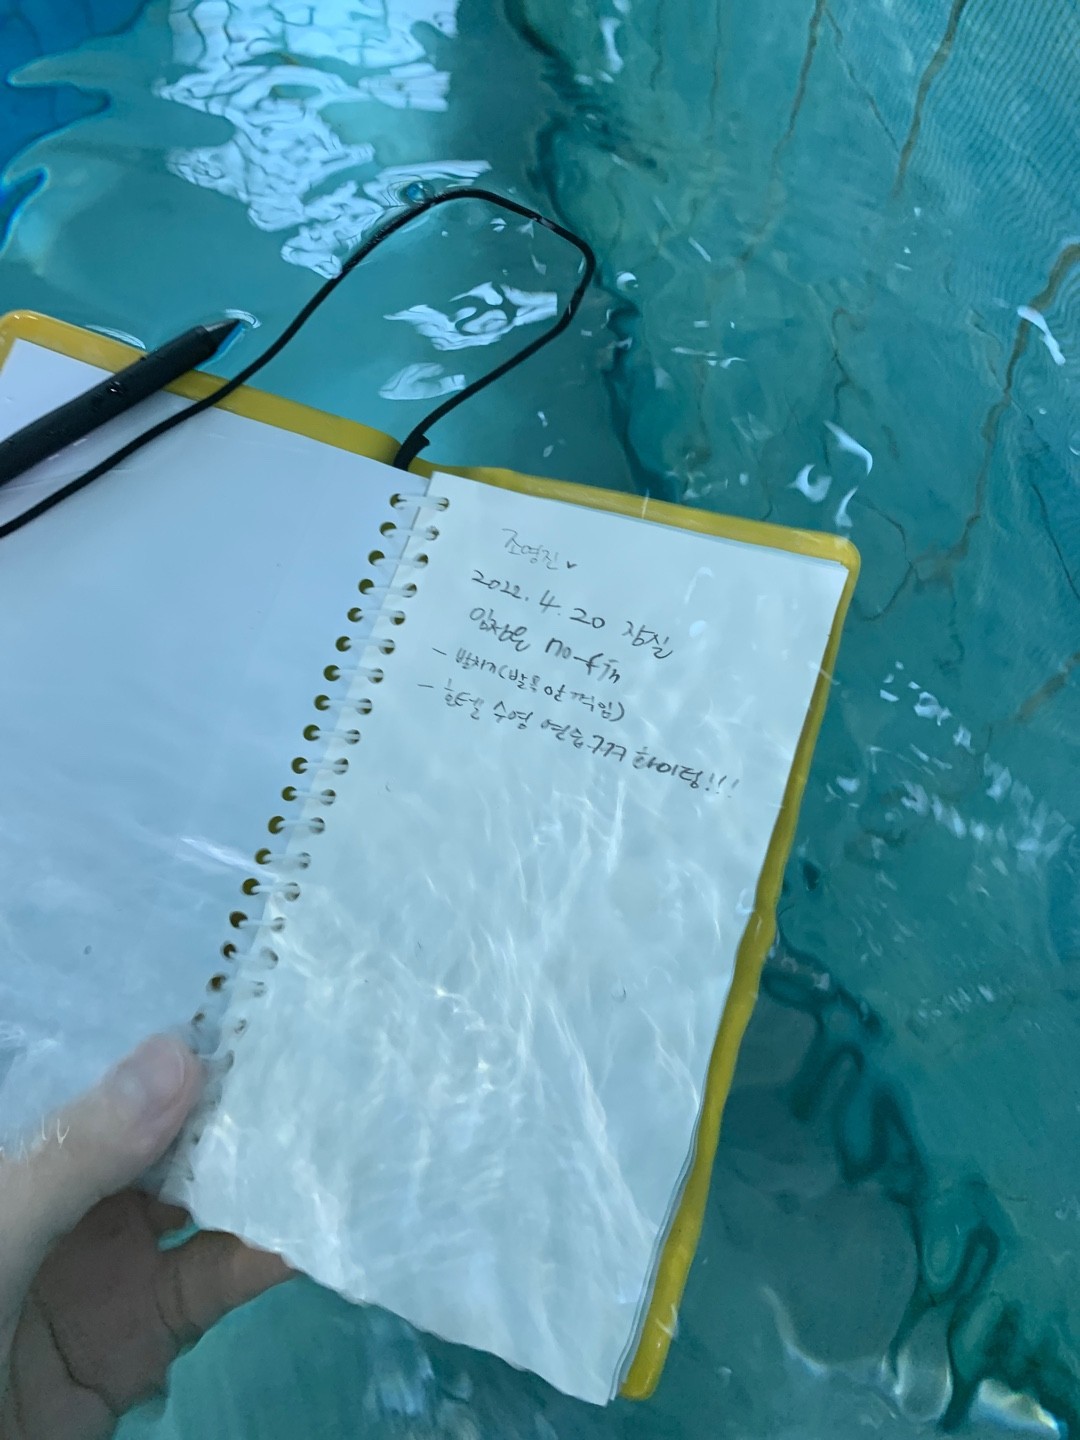 조영진♥
2022. 4. 20 잠실
임정은 no-fin
- 발차기(발목 안 꺽임)
- 호텔 수영 연습 ㄱㄱㄱ 화이팅!!!